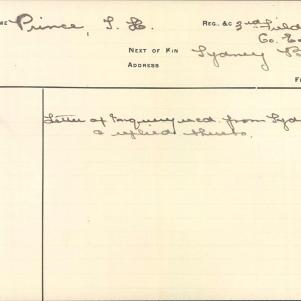 ME Prince, T. H. REG. &C 3rd Field
Co. E
NEXT OF KIN Sydney B
ADDRESS
F
Letter of Enquiry recd. from Syd
& replied thereto.